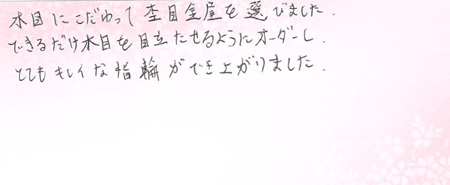 木目にこだわって杢目金屋を選びました.
できるだけ木目を目立たせるようにオーダーし.
とてもキレイな指輪ができ上がりました.